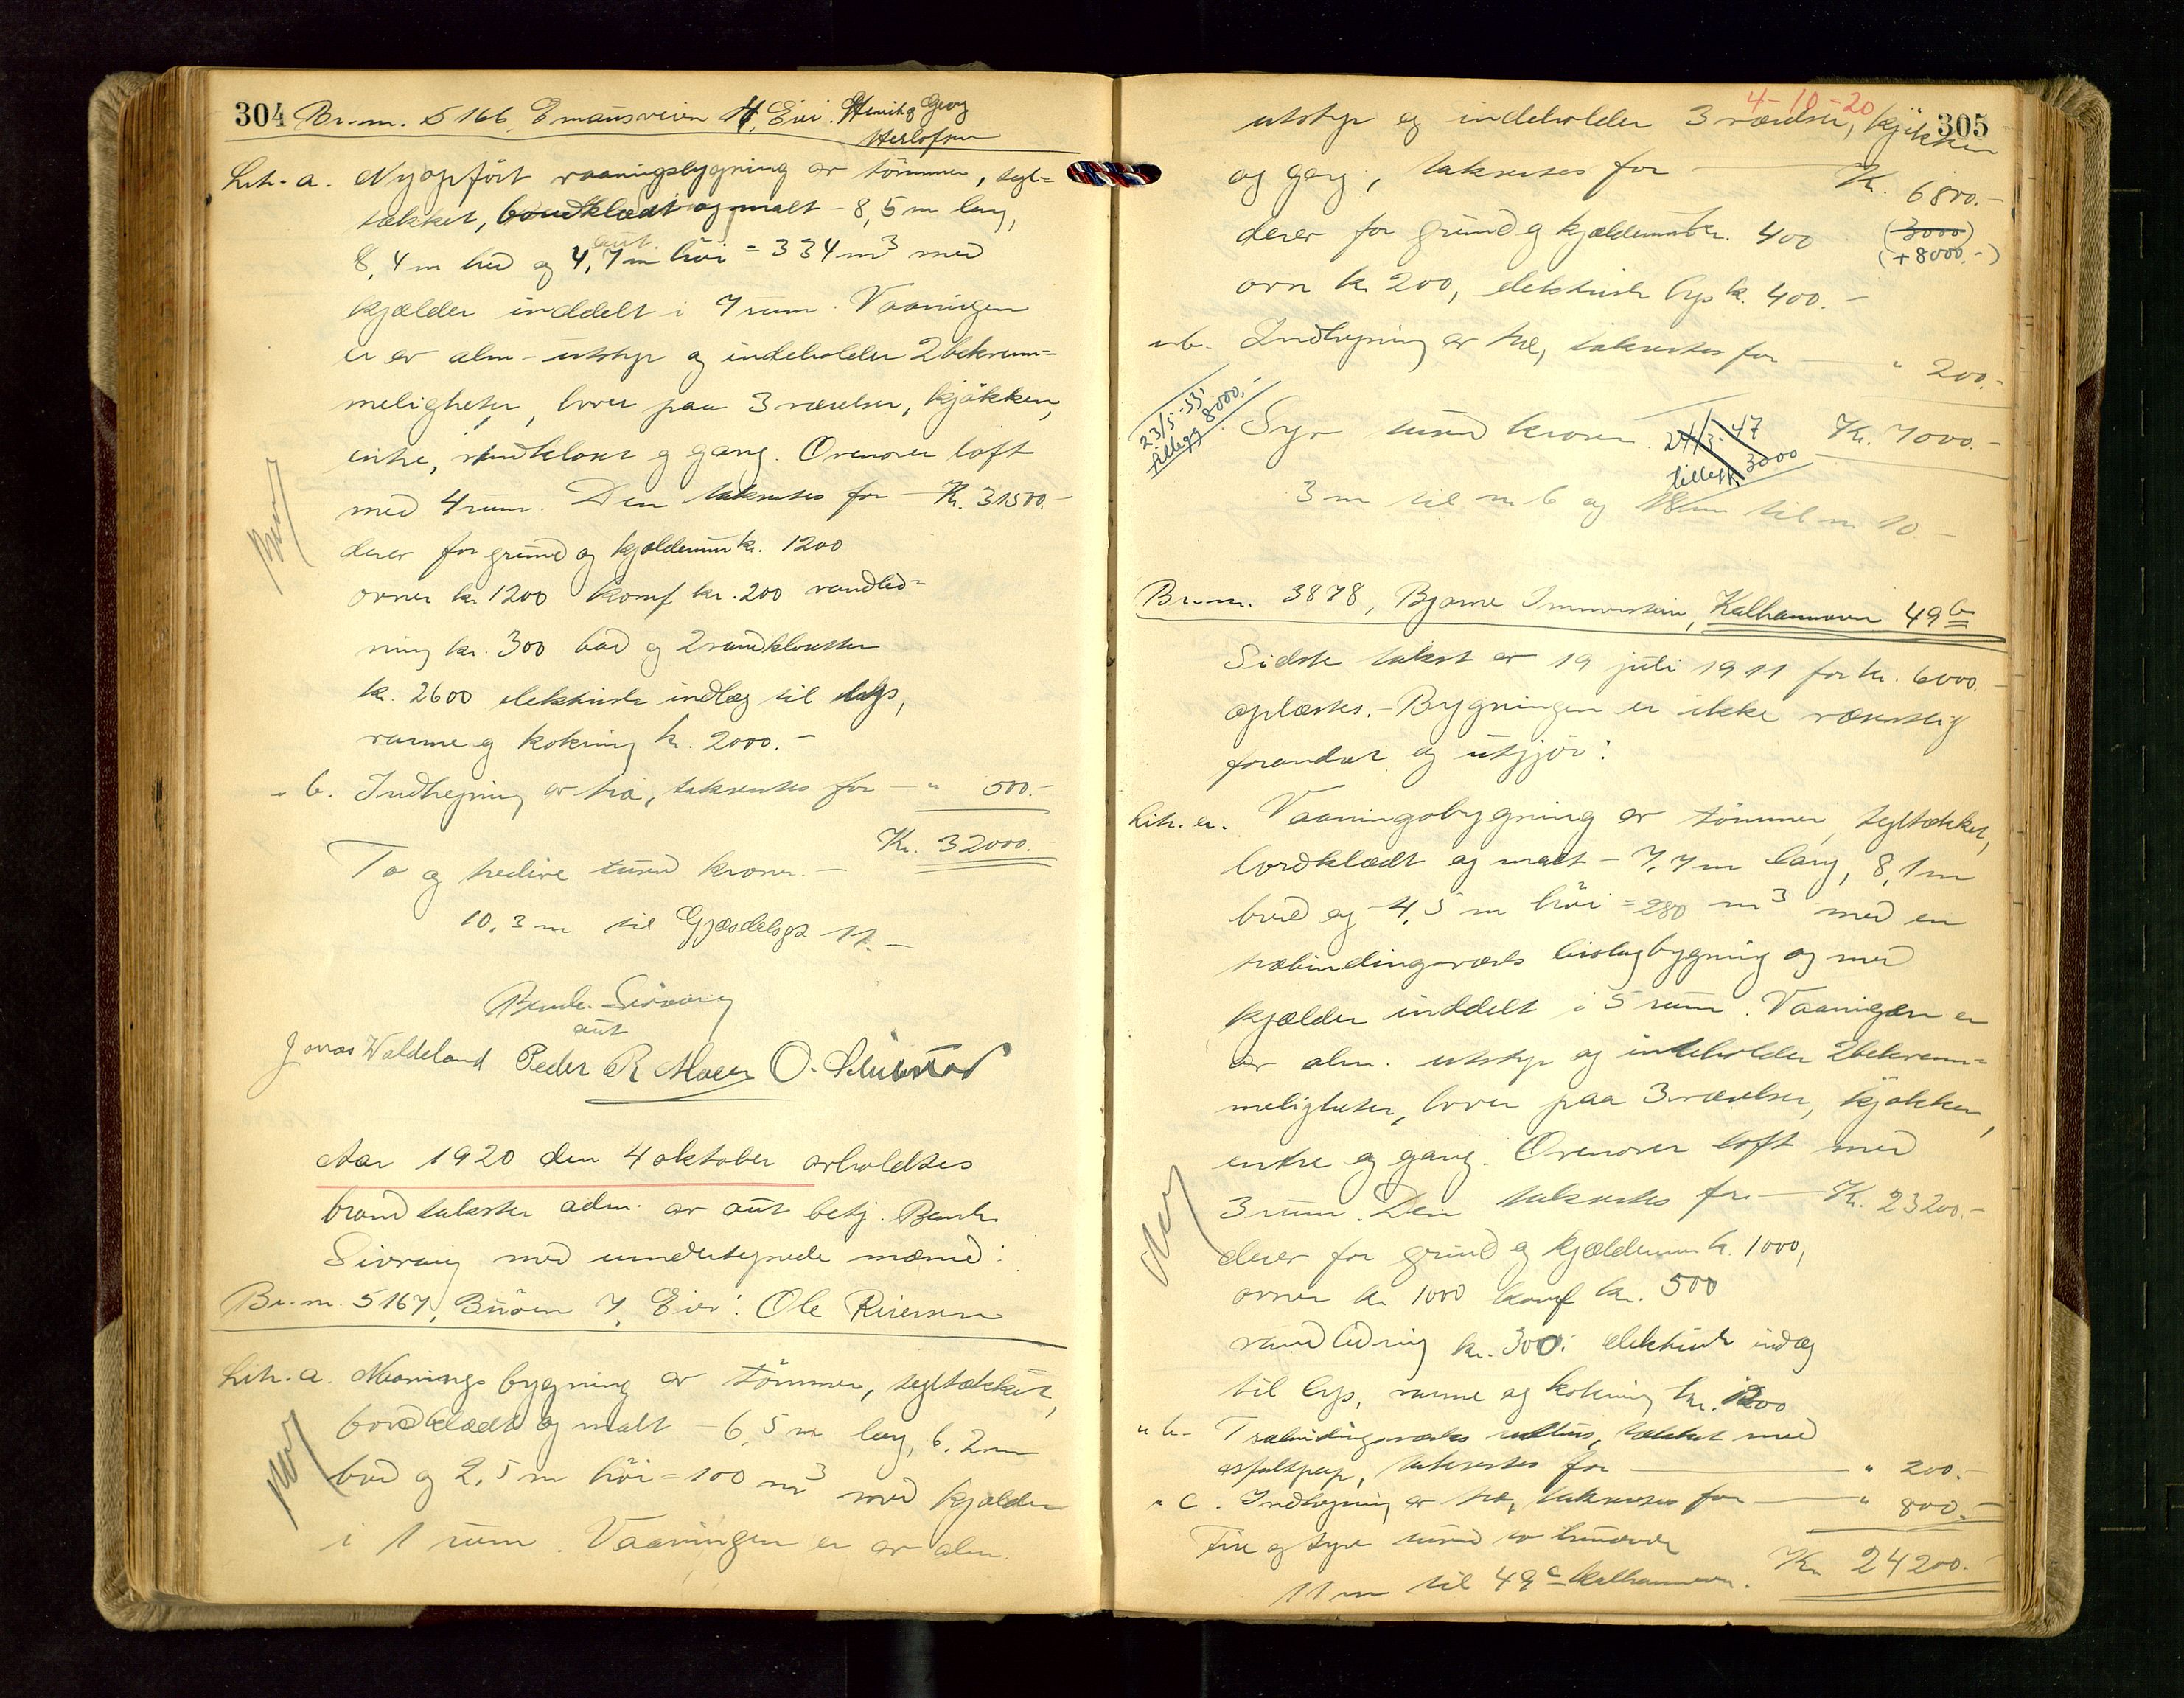 304 Br.nr. 5166, Emausveien 4, Eier: Henrik Georg
Herlofsen
Litr. a. Nyopført vaaningsbygning av tömmer, tegl=
tækket, bordklædt og malt - 8,5 m lang,
aut.
8,4 m bred og 4,7 m höi = 334 m³ med
kjælder inddelt i 7 rum. Vaaningen
er av alm. utstyr og indeholder 2 bekvem=
meligheter, hver paa 3 værelser, kjökken,
entre, vandkloset og gang. Ovenover loft
med 4 rum. Den takseres for - Kr. 31500.-
derav for grund og kjældermur kr. 1200
ovner kr. 1200 komf kr. 200 vandled=
ning kr. 300 bad og 2 vandklosetter
kr. 2600 elektrisk indlæg til lys,
varme og kokning kr. 2000.-
" b. Indhegning av træ, takseres for - " 500.-
Kr. 32000.-
To og tredive tusind kroner.-
10,3 m til Gjesdalsgt 11.-
Bernh. Sivrang
aut
Jonas Waldeland Peder R Moen O.
Aar 1920 den 4 oktober avholdtes
brandtakster adm. av aut betj. Bernh.
Sivrang med undertegnede mænd:
Br.nr. 5167, Buöen 7, Eier: Ole Reiersen
Litr. a. Vaaningsbygning av tömmer, tegltækket,
bordklædt og malt - 6,5 m lang, 6,2 m
bred og 2,5 m höi = 100 m³ med kjælder
i 1 rum. Vaaningen er av alm.
4-10-20
305
utstyr og indeholder 3 værelser, kjökken
og gang, takseres for - Kr. 6800.-
derav for grund og kjældermur kr. 400 (3000)
(+8000.-)
ovn kr. 200, elektrisk lys kr. 400.-
" b. Indhegning av træ, takseres for - " 200.-
23/5-53
tillegg 8000.-
Syv tusind kroner. Kr. 7000.-
24/3-47
tillegg 3000
3 m til nr 6 og 18 m til nr 10.-
Br.nr. 3878, Bjarne Immerstein, Kalhammeren 49b
Sidste takst av 19 juli 1911 for kr. 6000.-
oplæstes.- Bygningen er ikke væsentlig
forandret og utgjör:
Litr. a. Vaaningsbygning av tömmer, tegltækket,
bordklædt og malt - 7,7 m lang, 8,1 m
bred og 4,5 m höi = 280 m³ med en
træbindingsverks bislagbygning og med
kjælder inddelt i 5 rum. Vaaningen er
av alm. utstyr og indeholder 2 bekvem=
meligheter, hver paa 3 værelser, kjökken,
entre og gang. Ovenover loft med
3 rum. Den takseres for - Kr. 23200.-
derav for grund og kjældermur kr. 1000,
ovner kr. 1000 komf kr. 500
vandledning kr. 300. elektrisk indlæg
til lys, varme og kokning kr. 1200
" b. Træbindingsverks uthus, tækket med
asfaltpap, takseres for - " 200.-
" c. Indhegning av træ, takseres for - " 800.-
Fire og tyve tusind to hundrede Kr. 24200.-
11 m til 49c Kalhammeren.